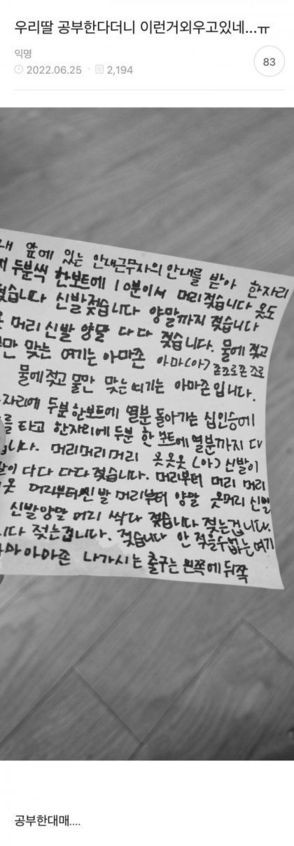 우리딸 공부한다더니 이런거외우고있네...ㅠ
익명
2022.06.25 2,194
83
내 앞에 있는 안내근무자의 안내를 받아 한자리
두분씩 한보트에 10분이서 머리젖습니다 옷도
젖습니다 신발젖습니다 양말까지 젖습니다
옷 머리신발 양말 다 다 젖습니다. 물에 젖고
물만 맞는 여기는 아마존 아마(아) 존존조로존 조로
물에젖고 물만 맞는 여기는 아마존 입니다.
자리에 두분 한보트에 열분 돌아가는 십인승에
를 타고 한자리에 두분 한 보트에 열분까지 다
니다. 머리머리머리 옷옷옷 (아) 신발이
말이 다다 다다 젖습니다. 머리부터 머리 머리
옷 머리부터신발 머리부터 양말 옷머리 신발
신발양말 머리 싹다 젖습니다 젖는겁니다.
니다 젖는겁니다. 젖습니다 안 적을수없는여기
아마아마존 나가시는 출구는 왼쪽에뒤쪽
공부한대매....